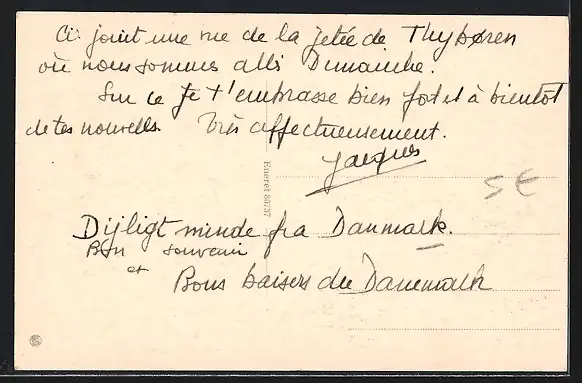 Ci joint une vue de la jetée de Thyborøn
où nous sommes allés Dimanche.
Sur ce je t'embrasse bien fort et à bientôt
de tes nouvelles. Très affectueusement.
Jacques
Eneret 88737
5 €
Dijligt minde fra Danmark.
Bon souvenir
et
Bons baisers du Danemark